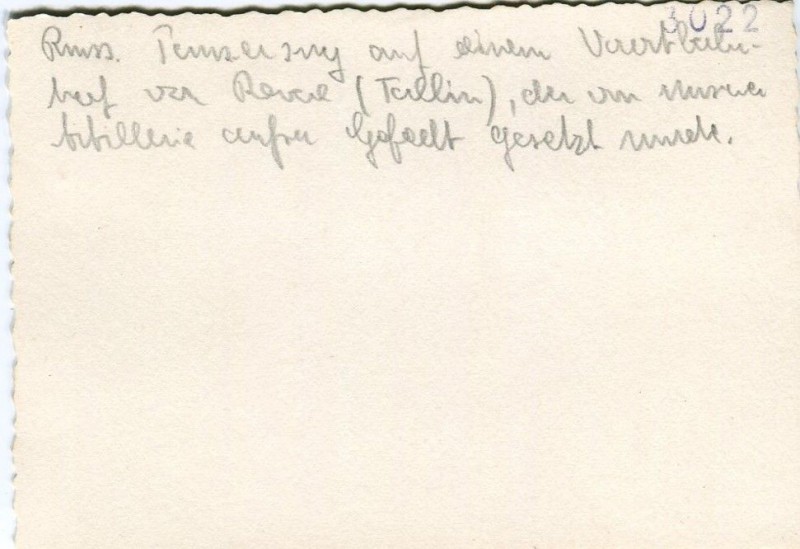 3022
Russ. Panzerzug auf einem Vorortbahn-
hof von Reval (Tallin), der von unserer
Artillerie außer Gefecht gesetzt wurde.